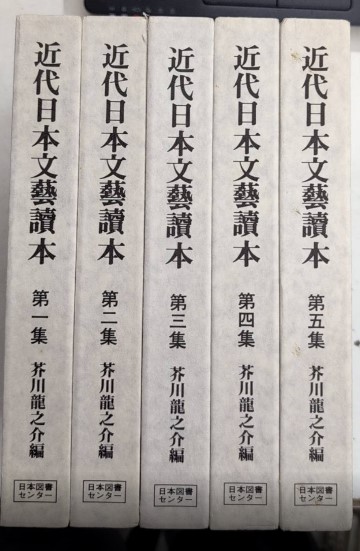 近代日本文藝讀本 第一集 芥川龍之介編
日本図書
センター
近代日本文藝讀本 第二集 芥川龍之介編
日本図書
センター
近代日本文藝讀本 第三集 芥川龍之介編
日本図書
センター
近代日本文藝讀本 第四集 芥川龍之介編
日本図書
センター
近代日本文藝讀本 第五集 芥川龍之介編
日本図書
センター